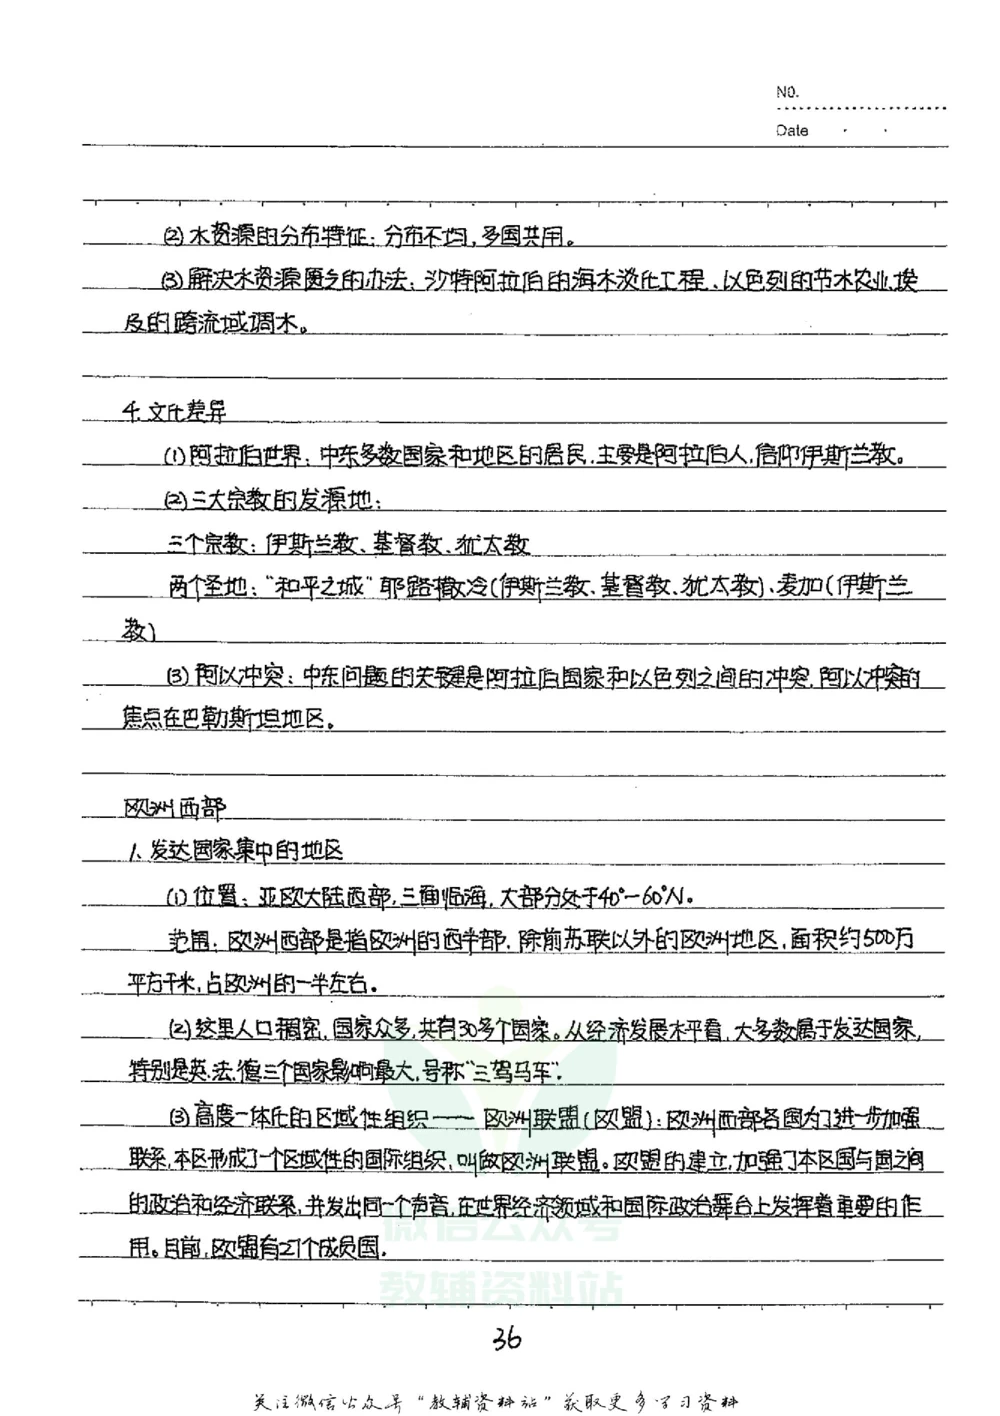 NO.
Date
(2)水资源的分布特征:分布不均,多国共用。
(3)解决水资源匮乏的办法:沙特阿拉伯的海水淡化工程、以色列的节水农业、埃
及的跨流域调水。
4.文化差异
(1)阿拉伯世界:中东多数国家和地区的居民,主要是阿拉伯人,信仰伊斯兰教。
(2)三大宗教的发源地:
三个宗教:伊斯兰教、基督教、犹太教
两个圣地:“和平之城”耶路撒冷(伊斯兰教、基督教、犹太教)、麦加(伊斯兰
教)
(3)阿以冲突:中东问题的关键是阿拉伯国家和以色列之间的冲突,阿以冲突的
焦点在巴勒斯坦地区。
欧洲西部
1、发达国家集中的地区
(1)位置:亚欧大陆西部,三面临海,大部分处于40°-60°N。
范围:欧洲西部是指欧洲的西半部,除前苏联以外的欧洲地区,面积约500万
平方千米,占欧洲的一半左右。
(2)这里人口稠密,国家众多,共有30多个国家。从经济发展水平看,大多数属于发达国家,
特别是英、法、德三个国家影响最大,号称“三驾马车”.
(3)高度一体化的区域性组织——欧洲联盟(欧盟):欧洲西部各国为了进一步加强
联系,本区形成了一个区域性的国际组织,叫做欧洲联盟。欧盟的建立,加强了本区国与国之间
的政治和经济联系,并发出同一个声音,在世界经济领域和国际政治舞台上发挥着重要的作
用。目前,欧盟有27个成员国.
微信公众号
教辅资料站
36
关注微信公众号“教辅资料站”获取更多学习资料